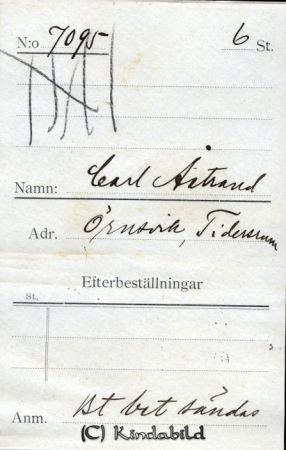 N:o 7095 6 St.
Namn: Carl Åstrand
Adr. Örnsvik, Tidersrum
Efterbeställningar
St.
Anm. Bt bet sändas
(C) Kindabild